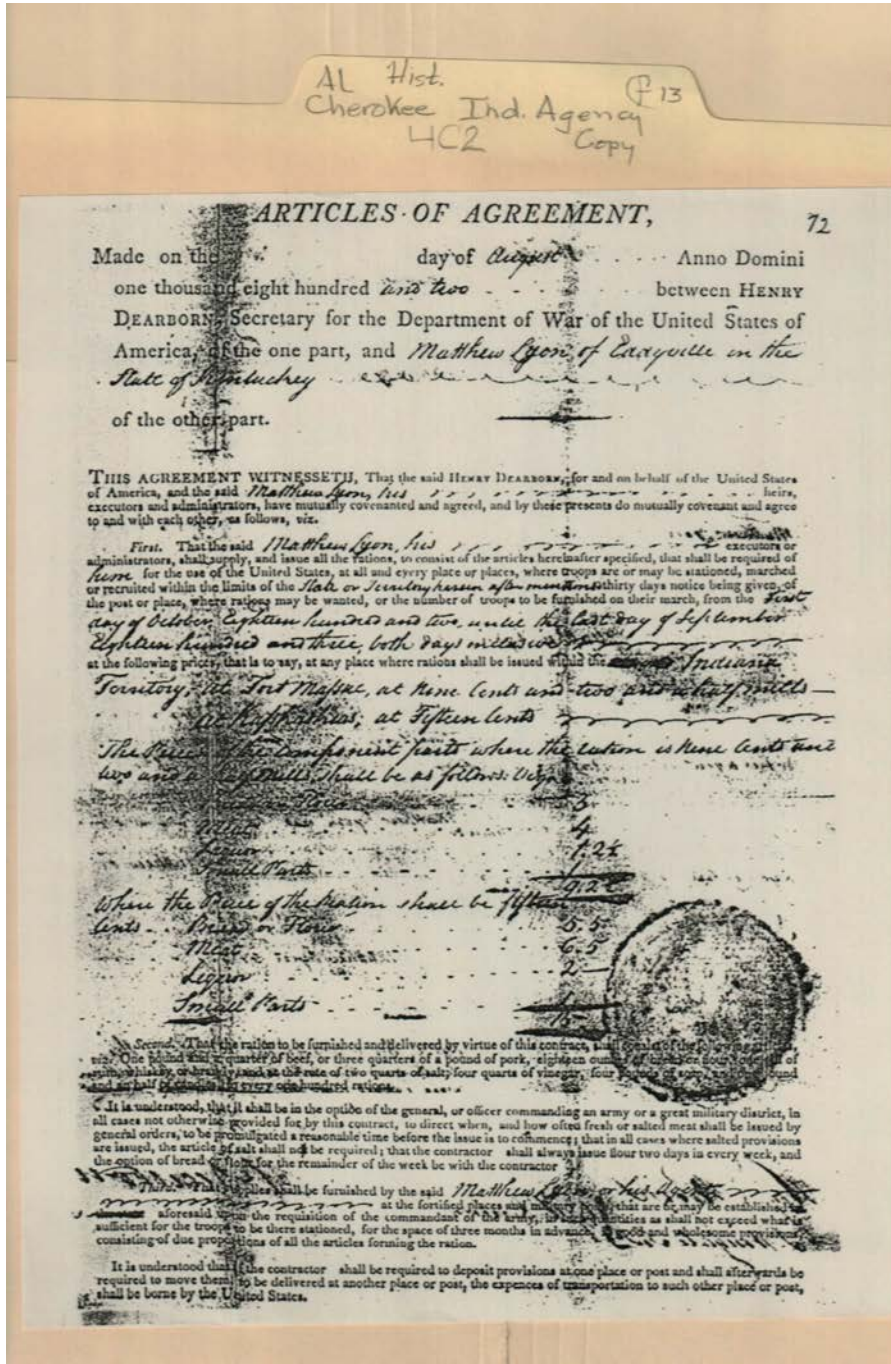 AL Hist.
F 13
Cherokee Ind. Agency
4C2 Copy
ARTICLES OF AGREEMENT,
72
Made on the day of August Anno Domini
one thousand eight hundred and two between HENRY
DEARBORN, Secretary for the Department of War of the United States of
America, of the one part, and Matthew Lyon, of Eddyville in the
State of Kentuckey
of the other part.
THIS AGREEMENT WITNESSETH, That the said HENRY DEARBORN, for and on behalf of the United States
of America, and the said Matthew Lyon, his heirs,
executors and administrators, have mutually covenanted and agreed, and by these presents do mutually covenant and agree
to and with each other, as follows, viz.
First. That the said Matthew Lyon, his executors or
administrators, shall supply, and issue all the rations, to consist of the articles hereinafter specified, that shall be required of
him for the use of the United States, at all and every place or places, where troops are or may be stationed, marched
or recruited within the limits of the State or Territory herein after mentioned thirty days notice being given, of
the post or place, where rations may be wanted, or the number of troops to be furnished on their march, from the first
day of October Eighteen hundred and two, untill the last day of September
Eighteen hundred and three, both days inclusive
at the following prices, that is to say, at any place where rations shall be issued within the Indiana
Territory, at Fort Massac, at Nine Cents and two and a half mills
at Kaskaskias; at Fifteen Cents
The Price of the Component parts where the ration is Nine Cents and
two and a half mills, shall be as follows.
Bread or Flour 3
Meat 4
Liquor 1.2½
Small Parts 1
9.2½
Where the Price of the Ration shall be fifteen
Cents Bread or Flour 5.5
Meat 6.5
Liquor 2
Small Parts 1
15
Second. That the ration to be furnished and delivered by virtue of this contract, shall consist of the following
viz. One pound and a quarter of beef, or three quarters of a pound of pork, eighteen ounces of bread or flour, of
rum, whiskey, or brandy, and at the rate of two quarts of salt; four quarts of vinegar, four pounds of soap, and one pound
and an half of candles to every one hundred rations.
It is understood, that it shall be in the option of the general, or officer commanding an army or a great military district, in
all cases not otherwise provided for by this contract, to direct when, and how often fresh or salted meat shall be issued by
general orders, to be promulgated a reasonable time before the issue is to commence; that in all cases where salted provisions
are issued, the article of salt shall not be required; that the contractor shall always issue flour two days in every week, and
the option of bread or flour for the remainder of the week be with the contractor
Third. That supplies shall be furnished by the said Matthew Lyon, or his Agents
at the fortified places and military posts, that are or may be established in
aforesaid upon the requisition of the commandant of the army, in such quantities as shall not exceed what is
sufficient for the troops to be there stationed, for the space of three months in advance, in good and wholesome provisions,
consisting of due proportions of all the articles forming the ration.
It is understood that if the contractor shall be required to deposit provisions at one place or post and shall afterwards be
required to move them, to be delivered at another place or post, the expences of transportation to such other place or post,
shall be borne by the United States.